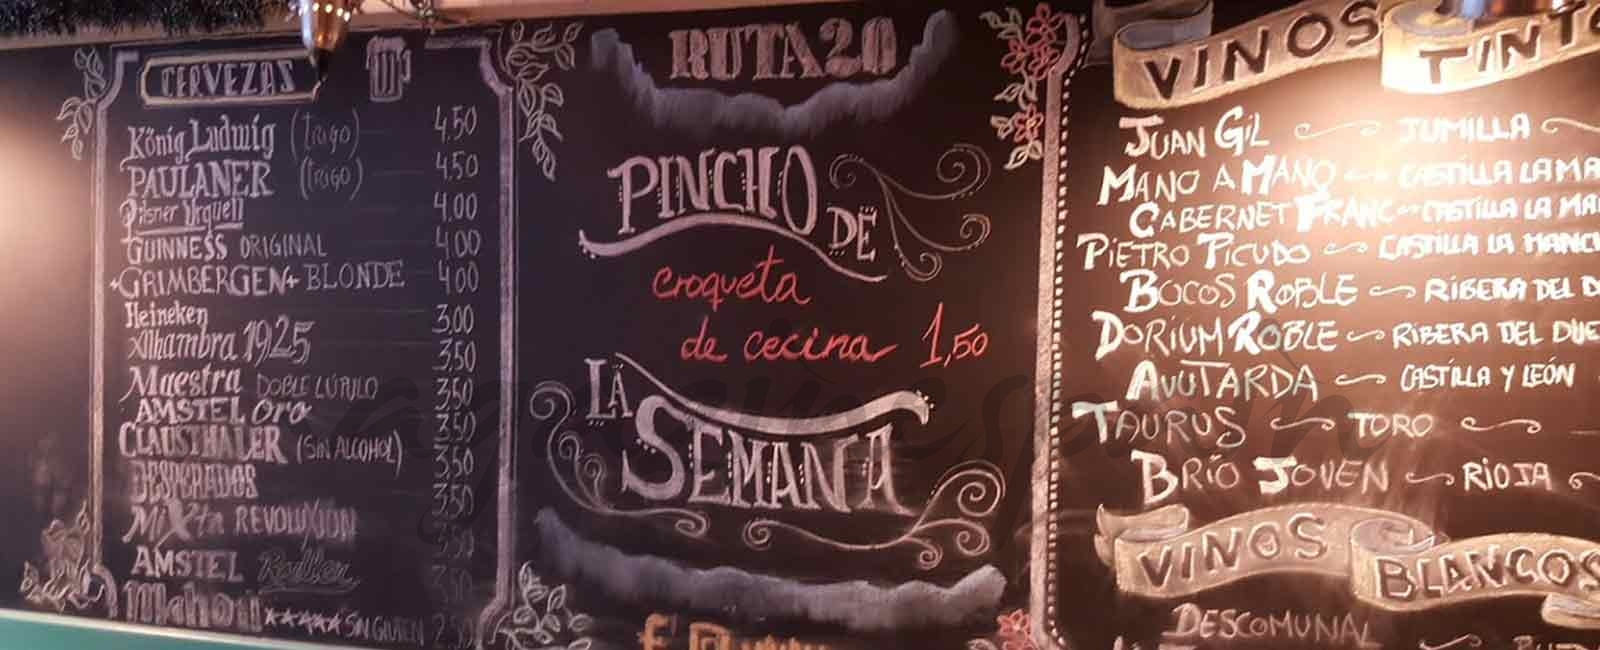 CERVEZAS
König Ludwig (trigo) 4,50
PAULANER (trigo) 4,50
Pilsner Urquell 4,00
GUINNESS ORIGINAL 4,00
GRIMBERGEN BLONDE 4,00
Heineken 3,00
Alhambra 1925 3,50
Maestra DOBLE LÚPULO 3,50
AMSTEL Oro 3,50
CLAUSTHALER (SIN ALCOHOL) 3,50
DESPERADOS 3,50
MiXta REVOLUXION 3,50
AMSTEL Radler 3,50
Mahou ★★★★★ SIN GLUTEN 2,50
RUTA 20
PINCHO
DE
croqueta
de cecina 1,50
LA
SEMANA
VINOS TINTO
JUAN GIL JUMILLA
MANO A MANO CASTILLA LA MA
CABERNET FRANC CASTILLA LA MAN
PIETRO PICUDO CASTILLA LA MANCH
BOCOS ROBLE RIBERA DEL D
DORIUM ROBLE RIBERA DEL DUE
AVUTARDA CASTILLA Y LEÓN
TAURUS TORO
BRÍO JOVEN RIOJA
VINOS BLANCOS
DESCOMUNAL